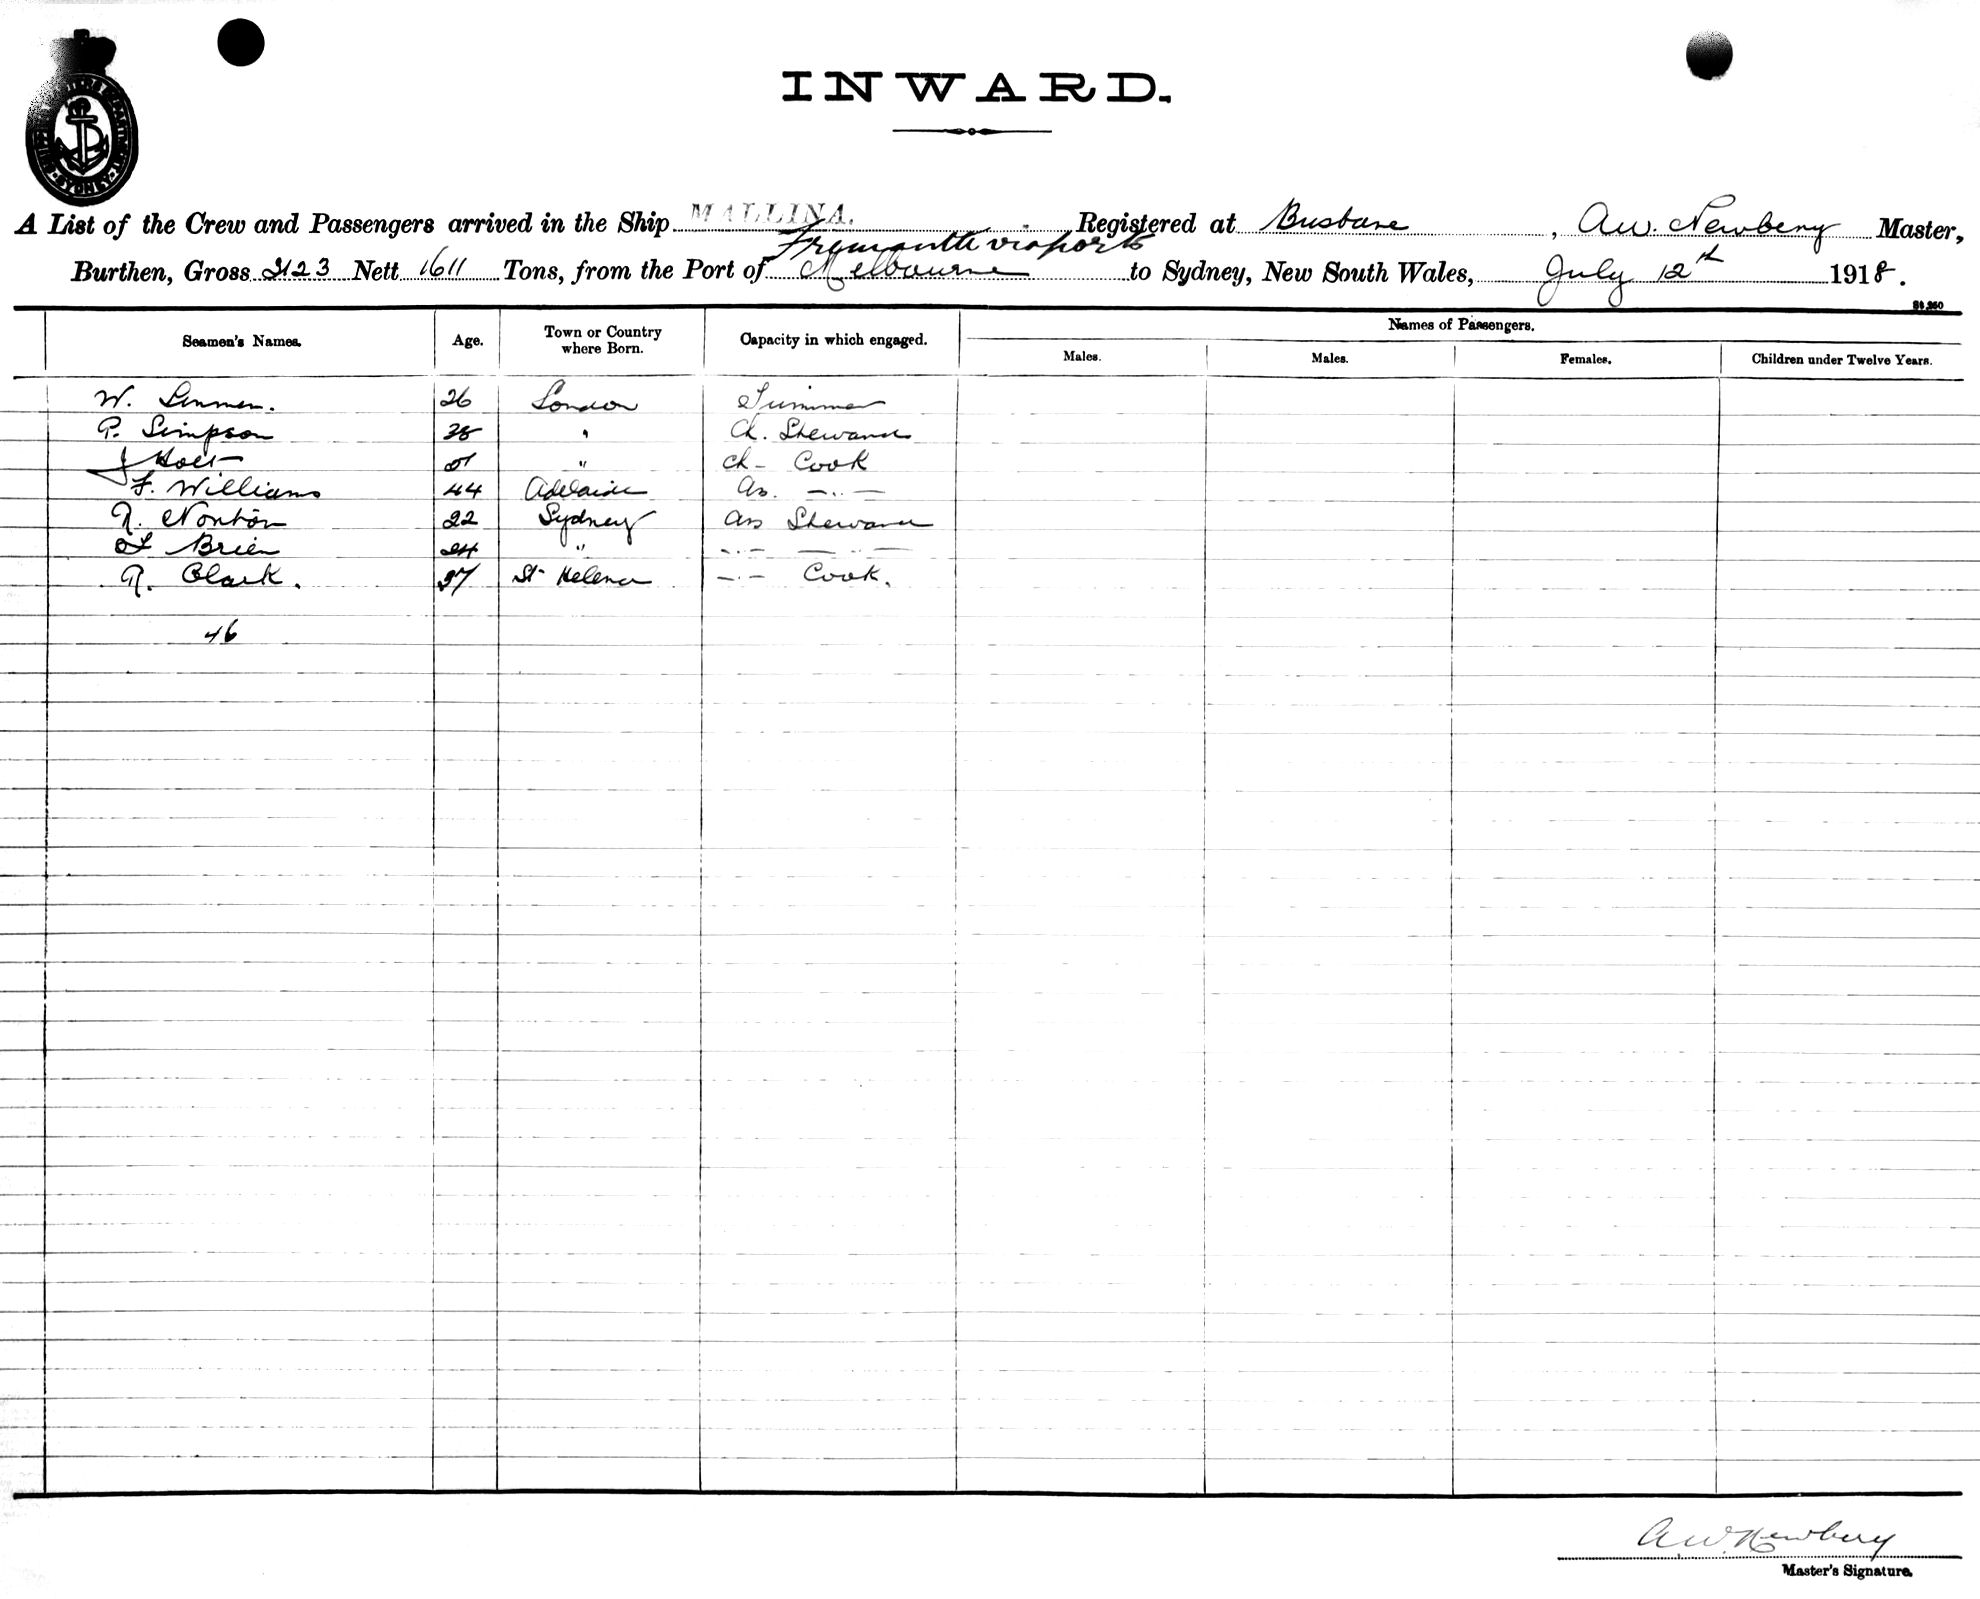 INWARD.
SYDNEY
A List of the Crew and Passengers arrived in the Ship MALLINA. Registered at Brisbane, A.W. Newbery Master,
Fremantle via ports
Burthen, Gross 2123 Nett 1611 Tons, from the Port of Melbourne to Sydney, New South Wales, July 12th 1918.
Names of Passengers.
Seamen's Names. Age. Town or Country where Born. Capacity in which engaged. Males. Males. Females. Children under Twelve Years.
W. 26 London Trimmer
P. Simpson 38 " Ch. Steward
J Holt " Ch - Cook
F. Williams 44 Adelaide As. -"-
R. Norton 22 Sydney Ass Steward
Brien 24 " -"- -"-
R. Clark. 37 St Helena -"- Cook.
46
A.W. Newbery
Master's Signature.